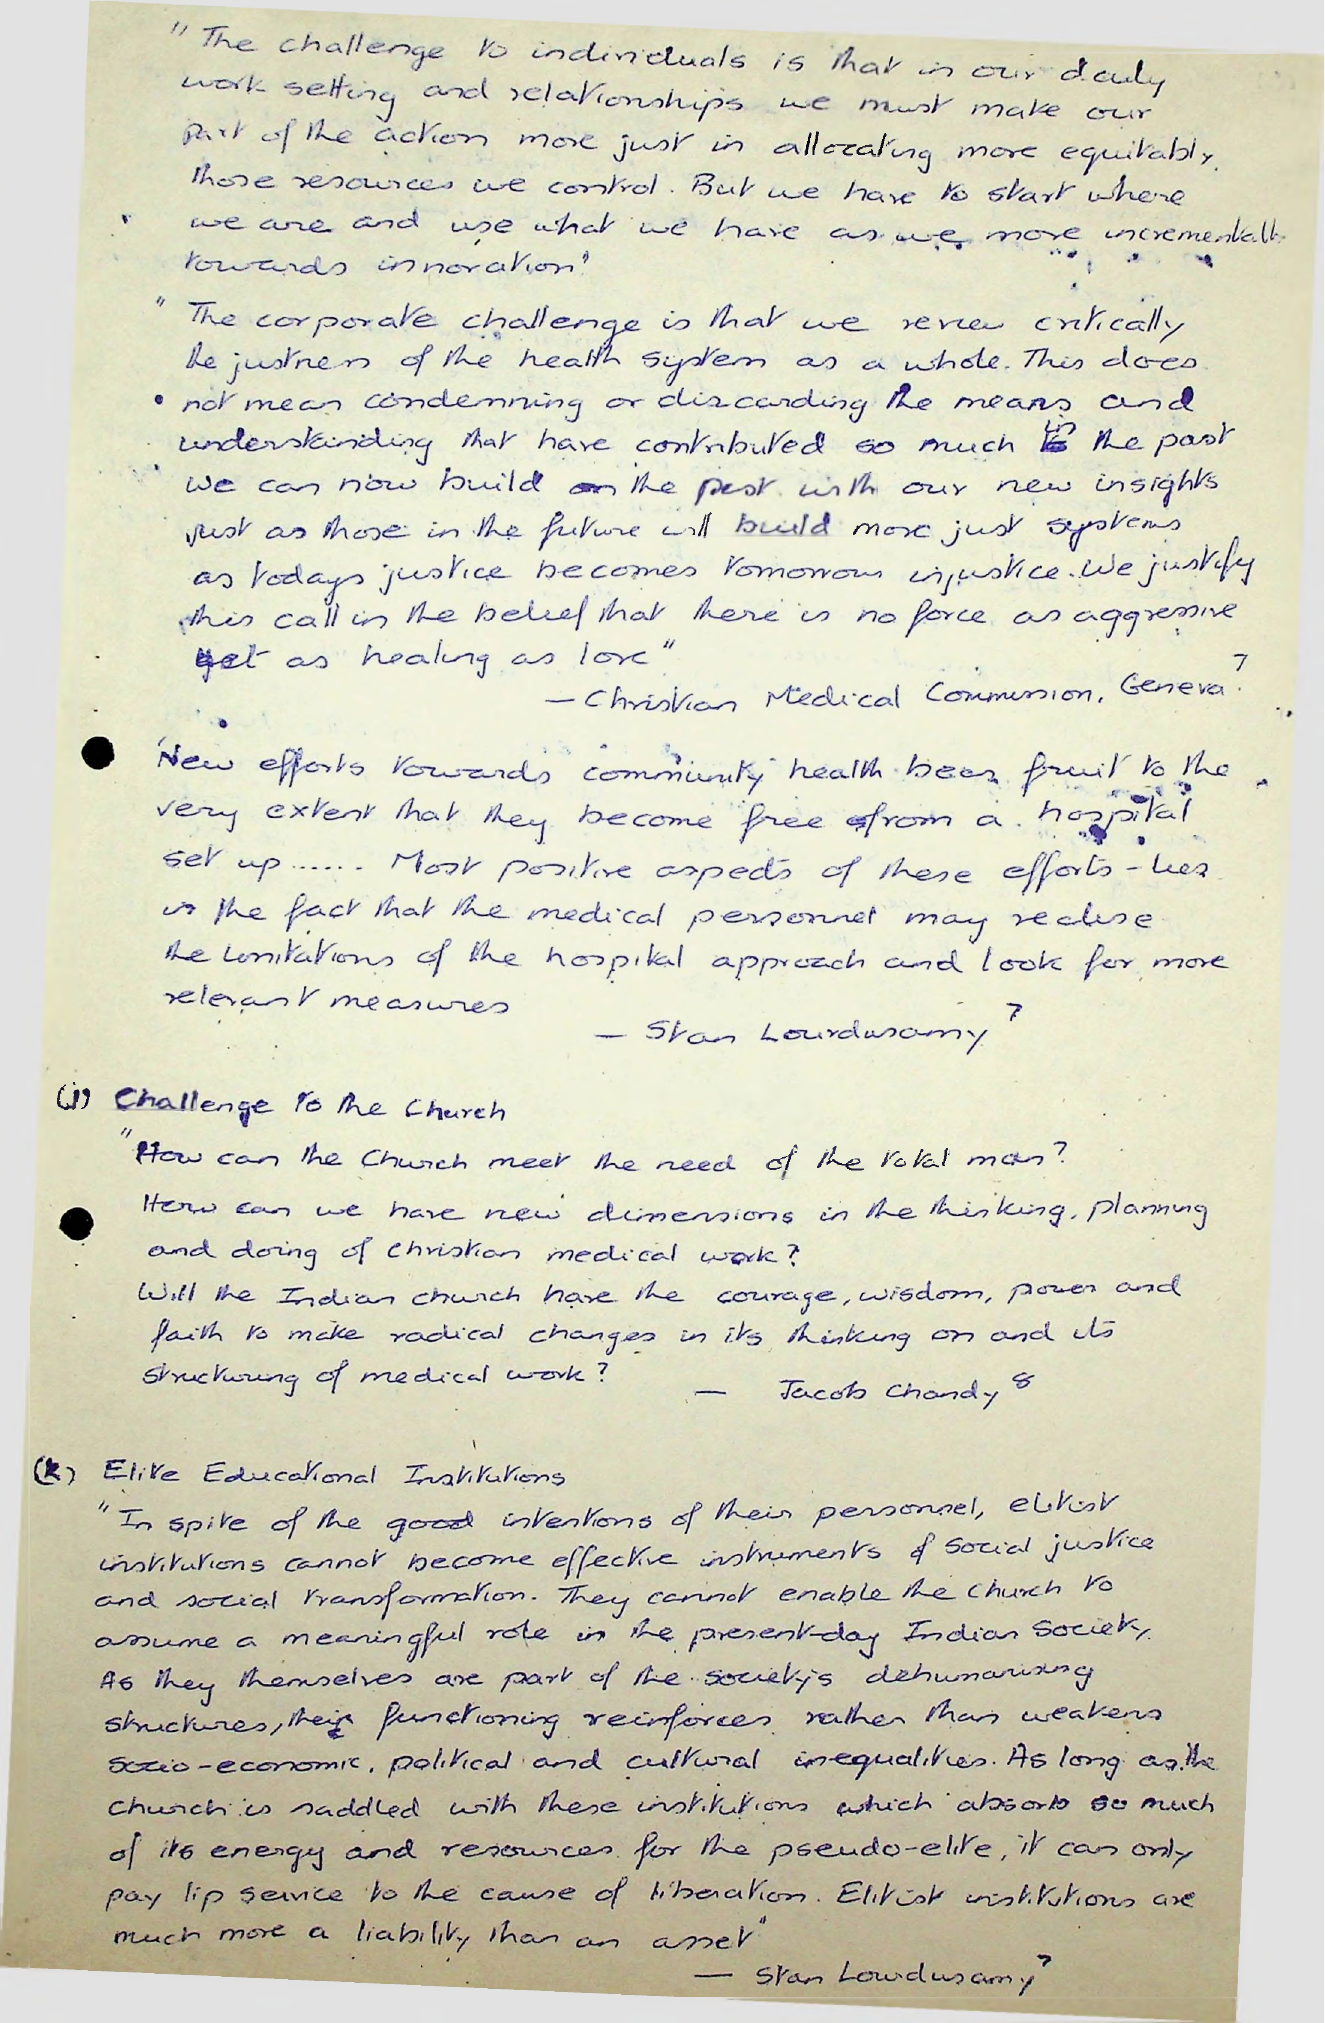 " The challenge to individuals is that in our daily
work setting and relationships we must make our
part of the action more just in allocating more equitably,
those resources we control. But we have to start where
we are and use what we have as we move incrementally
towards innovation"
" The corporate challenge is that we review critically
the justness of the health system as a whole. This does
not mean condemning or discarding the means and
understanding that have contributed so much in the past
we can now build on the past with our new insights
just as those in the future will build more just systems
as todays justice becomes tomorrows injustice. We justify
this call in the belief that there is no force as aggressive
yet as healing as love"
— Christian Medical Commission, Geneva 7.
'New efforts towards community health bear fruit to the
very extent that they become free from a hospital
set up ...... Most positive aspects of these efforts - lies
in the fact that the medical personnel may realise
the limitations of the hospital approach and look for more
relevant measures
— Stan Lourdusamy 7
(j) Challenge to the Church
"How can the Church meet the need of the total man?
How can we have new dimensions in the thinking, planning
and doing of Christian medical work?
Will the Indian church have the courage, wisdom, power and
faith to make radical changes in its thinking on and its
structuring of medical work?
— Jacob Chandy 8
(k) Elite Educational Institutions
"In spite of the good intentions of their personnel, elitist
institutions cannot become effective instruments of social justice
and social transformation. They cannot enable the church to
assume a meaningful role in the present-day Indian Society.
As they themselves are part of the society's dehumanising
structures, their functioning reinforces rather than weakens
socio-economic, political and cultural inequalities. As long as the
church is saddled with these institutions which absorb so much
of its energy and resources for the pseudo-elite, it can only
pay lip service to the cause of liberation. Elitist institutions are
much more a liability than an asset"
— Stan Lourdusamy 7